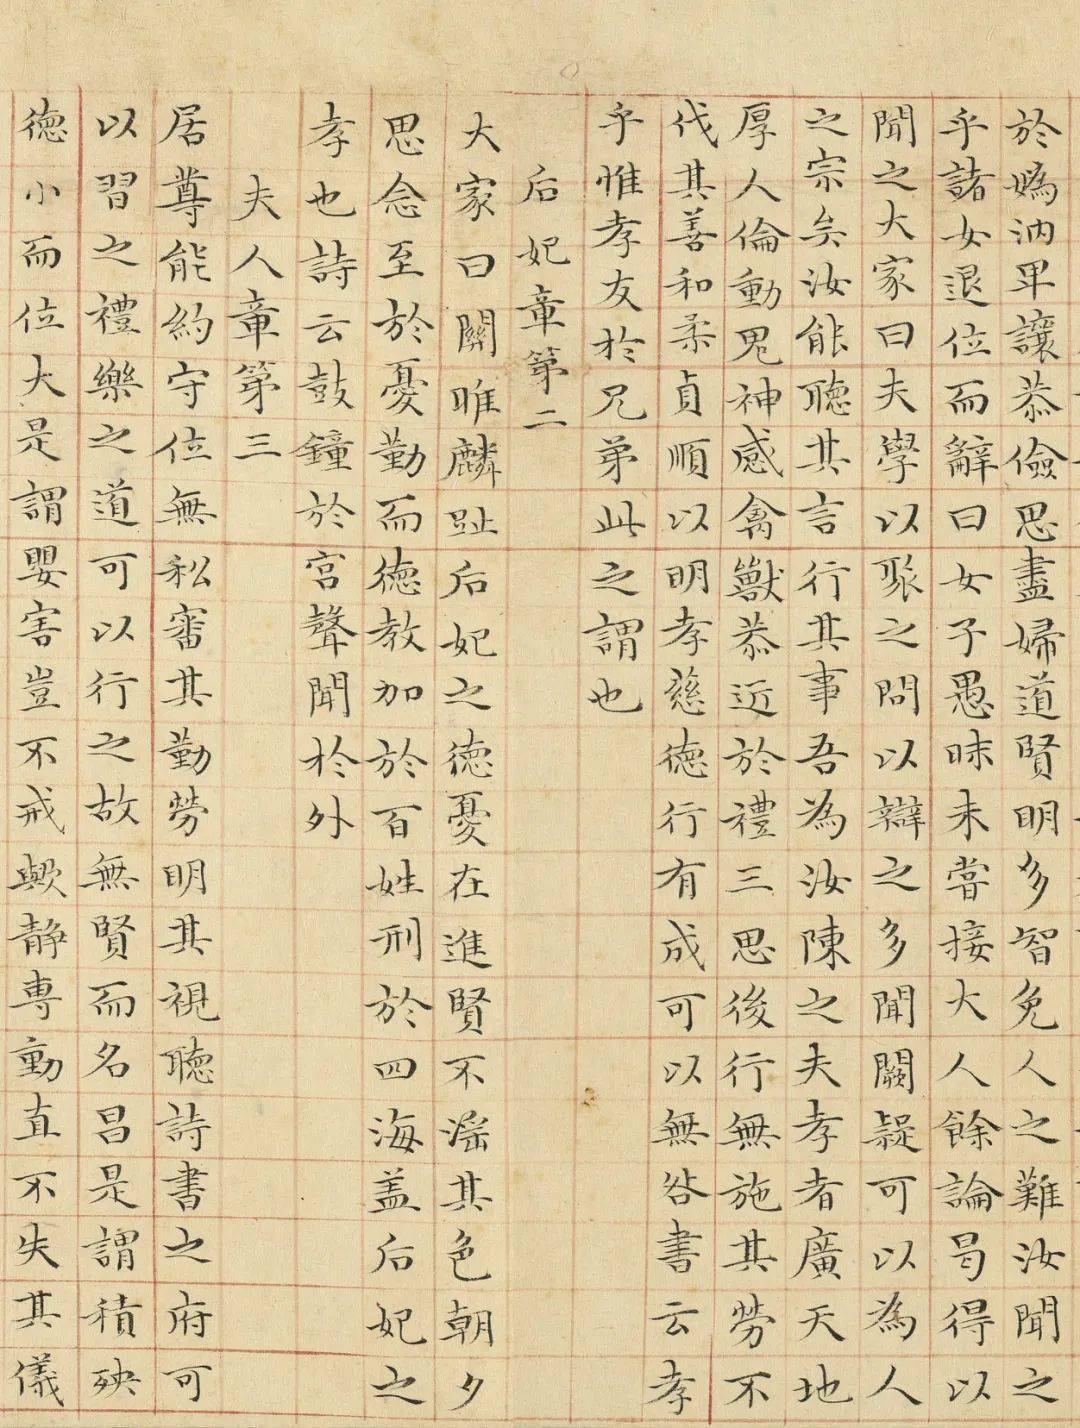 於嬀汭卑讓恭儉思盡婦道賢明多智免人之難汝聞之
乎諸女退位而辭曰女子愚昧未嘗接大人餘論曷得以
聞之大家曰夫學以聚之問以辯之多聞闕疑可以為人
之宗矣汝能聽其言行其事吾為汝陳之夫孝者廣天地
厚人倫動鬼神感禽獸恭近於禮三思後行無施其勞不
伐其善和柔貞順以明孝慈德行有成可以無咎書云孝
乎惟孝友於兄弟此之謂也
后妃章第二
大家曰關雎麟趾后妃之德憂在進賢不淫其色朝夕
思念至於憂勤而德教加於百姓刑於四海盖后妃之
孝也詩云鼓鐘於宮聲聞於外
夫人章第三
居尊能約守位無私審其勤勞明其視聽詩書之府可
以習之禮樂之道可以行之故無賢而名昌是謂積殃
德小而位大是謂嬰害豈不戒歟靜專動直不失其儀